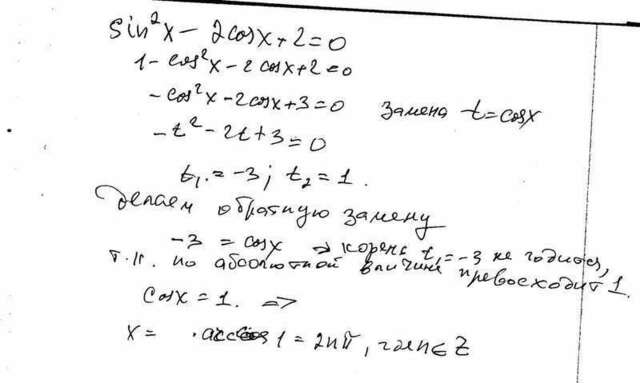 sin²x − 2cosx + 2 = 0
1 − cos²x − 2cosx + 2 = 0
−cos²x − 2cosx + 3 = 0 замена t = cosx
−t² − 2t + 3 = 0
t₁ = −3; t₂ = 1.
Делаем обратную замену
−3 = cosx ⇒ корень t₁ = −3 не годится,
т.к. по абсолютной величине превосходит 1.
cosx = 1. ⇒
x = arccos 1 = 2nπ, где n ∈ Z